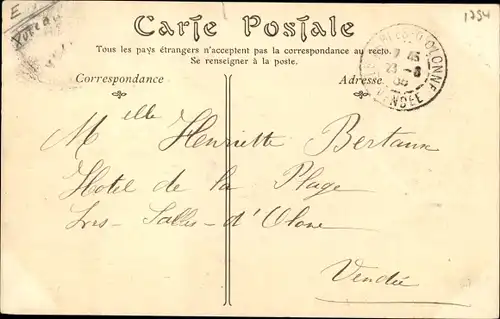 E
1754
Carte Postale
Tous les pays étrangers n'acceptent pas la correspondance au recto.
Se renseigner à la poste.
Correspondance
Adresse
OLONNE
7 45
23 - 8
VENDÉE
Melle Henriette Bertaux
Hotel de la Plage
Les - Salles - d'Olone
Vendée